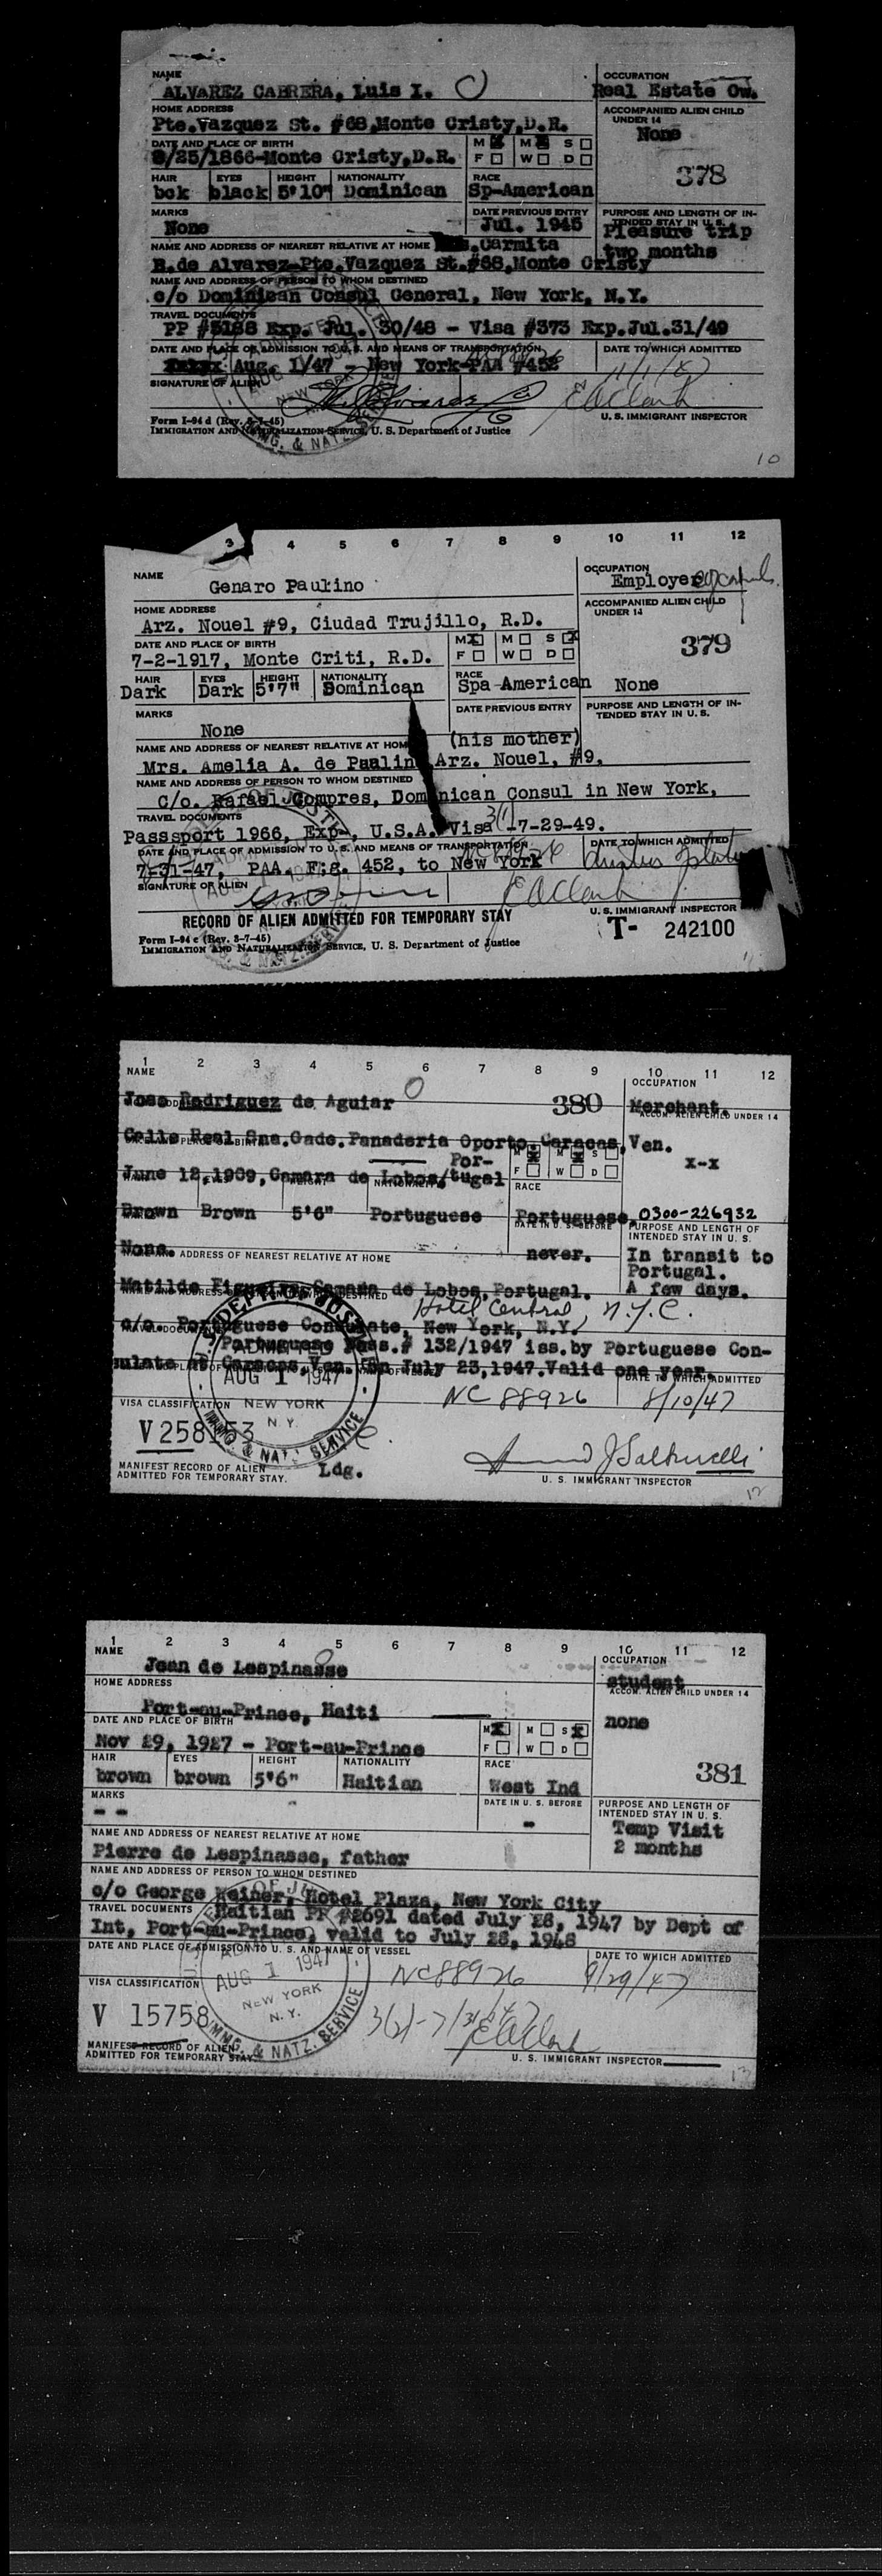 NAME
ALVAREZ CABRERA, Luis I.
OCCUPATION
Real Estate Ow.
HOME ADDRESS
Pte.Vazquez St. #68,Monte Cristy,D.R.
ACCOMPANIED ALIEN CHILD UNDER 14
None
DATE AND PLACE OF BIRTH
/25/1866-Monte Cristy,D.R.
M F M W S D
378
HAIR EYES HEIGHT NATIONALITY RACE
bck black 5'10" Dominican Sp-American
MARKS
None
DATE PREVIOUS ENTRY
Jul. 1945
PURPOSE AND LENGTH OF INTENDED STAY IN U. S.
Pleasure trip
two months
NAME AND ADDRESS OF NEAREST RELATIVE AT HOME
.Carmita
B.de Alvarez-Pte.Vazquez St.#68,Monte Cristy
NAME AND ADDRESS OF PERSON TO WHOM DESTINED
c/o Dominican Consul General, New York, N.Y.
TRAVEL DOCUMENTS
PP #5188 Exp. Jul. 30/48 - Visa #373 Exp.Jul.31/49
DATE AND PLACE OF ADMISSION TO U. S. AND MEANS OF TRANSPORTATION
Aug. 1/47 - New York-PAA #452
DATE TO WHICH ADMITTED
11/1/47
SIGNATURE OF ALIEN
E A Clark
U. S. IMMIGRANT INSPECTOR
Form I-94 d (Rev. 3-7-45)
IMMIGRATION AND NATURALIZATION SERVICE, U. S. Department of Justice
10
3 4 5 6 7 8 9 10 11 12
NAME
Genaro Paulino
OCCUPATION
Employer
HOME ADDRESS
Arz. Nouel #9, Ciudad Trujillo, R.D.
ACCOMPANIED ALIEN CHILD UNDER 14
DATE AND PLACE OF BIRTH
7-2-1917, Monte Criti, R.D.
M F M W S D
379
HAIR EYES HEIGHT NATIONALITY RACE
Dark Dark 5'7" Dominican Spa-American None
MARKS
None
DATE PREVIOUS ENTRY
PURPOSE AND LENGTH OF INTENDED STAY IN U. S.
NAME AND ADDRESS OF NEAREST RELATIVE AT HOME
(his mother)
Mrs. Amelia A. de Paulin Arz. Nouel, #9,
NAME AND ADDRESS OF PERSON TO WHOM DESTINED
C/o. Rafael Compres, Dominican Consul in New York,
TRAVEL DOCUMENTS
Passsport 1966, Exp-, U.S.A. Visa 3(1)-7-29-49.
DATE AND PLACE OF ADMISSION TO U. S. AND MEANS OF TRANSPORTATION
7-31-47, PAA. Fig. 452, to New York
DATE TO WHICH ADMITTED
SIGNATURE OF ALIEN
E A Clark
RECORD OF ALIEN ADMITTED FOR TEMPORARY STAY
U. S. IMMIGRANT INSPECTOR
T- 242100
Form I-94 c (Rev. 3-7-45)
IMMIGRATION AND NATURALIZATION SERVICE, U. S. Department of Justice
11
1 2 3 4 5 6 7 8 9 10 11 12
NAME
OCCUPATION
Jose Rodriguez de Aguiar
380
Merchant.
ACCOM. ALIEN CHILD UNDER 14
Calle Real Sna.Gade.Panaderia Oporto.Caracas,Ven.
x-x
June 12,1909,Camara de Lobos/Por-tugal
M F M W S D
RACE
Brown Brown 5'6" Portuguese Portuguese.
0300-226932
DATE IN U. S. BEFORE
PURPOSE AND LENGTH OF INTENDED STAY IN U. S.
None.
never.
In transit to Portugal.
A few days.
NAME AND ADDRESS OF NEAREST RELATIVE AT HOME
Matilde Figueira.Camara de Lobos,Portugal.
Hotel Central, N.Y.C.
c/o. Portuguese Consulate, New York, N.Y.
Portuguese Pass.# 132/1947 iss.by Portuguese Con-
sulate at Caracas,Ven. on July 25,1947.Valid one year.
DATE TO WHICH ADMITTED
NC 88926
8/10/47
AUG 1 1947
NEW YORK
N. Y.
VISA CLASSIFICATION
V 258153
MANIFEST RECORD OF ALIEN
ADMITTED FOR TEMPORARY STAY.
Ldg.
U. S. IMMIGRANT INSPECTOR
12
1 2 3 4 5 6 7 8 9 10 11 12
NAME
Jean de Lespinasse
OCCUPATION
student
HOME ADDRESS
ACCOM. ALIEN CHILD UNDER 14
Port-au-Prince, Haiti
none
DATE AND PLACE OF BIRTH
Nov 29, 1927 - Port-au-Prince
M F M W S D
HAIR EYES HEIGHT NATIONALITY RACE
brown brown 5'6" Haitian West Ind
381
MARKS
- -
DATE IN U. S. BEFORE
-
PURPOSE AND LENGTH OF INTENDED STAY IN U. S.
Temp Visit
2 months
NAME AND ADDRESS OF NEAREST RELATIVE AT HOME
Pierre de Lespinasse, father
NAME AND ADDRESS OF PERSON TO WHOM DESTINED
c/o George Weiner, Hotel Plaza, New York City
TRAVEL DOCUMENTS
Haitian PP #2691 dated July 28, 1947 by Dept of
Int, Port-au-Prince, valid to July 28, 1948
DATE AND PLACE OF ADMISSION TO U. S. AND NAME OF VESSEL
DATE TO WHICH ADMITTED
NC88926
9/29/47
AUG 1 1947
NEW YORK
N. Y.
IMMG. & NATZ. SERVICE
VISA CLASSIFICATION
V 15758
3(2)-7/31/47
E A Clark
MANIFEST RECORD OF ALIEN
ADMITTED FOR TEMPORARY STAY
U. S. IMMIGRANT INSPECTOR
13